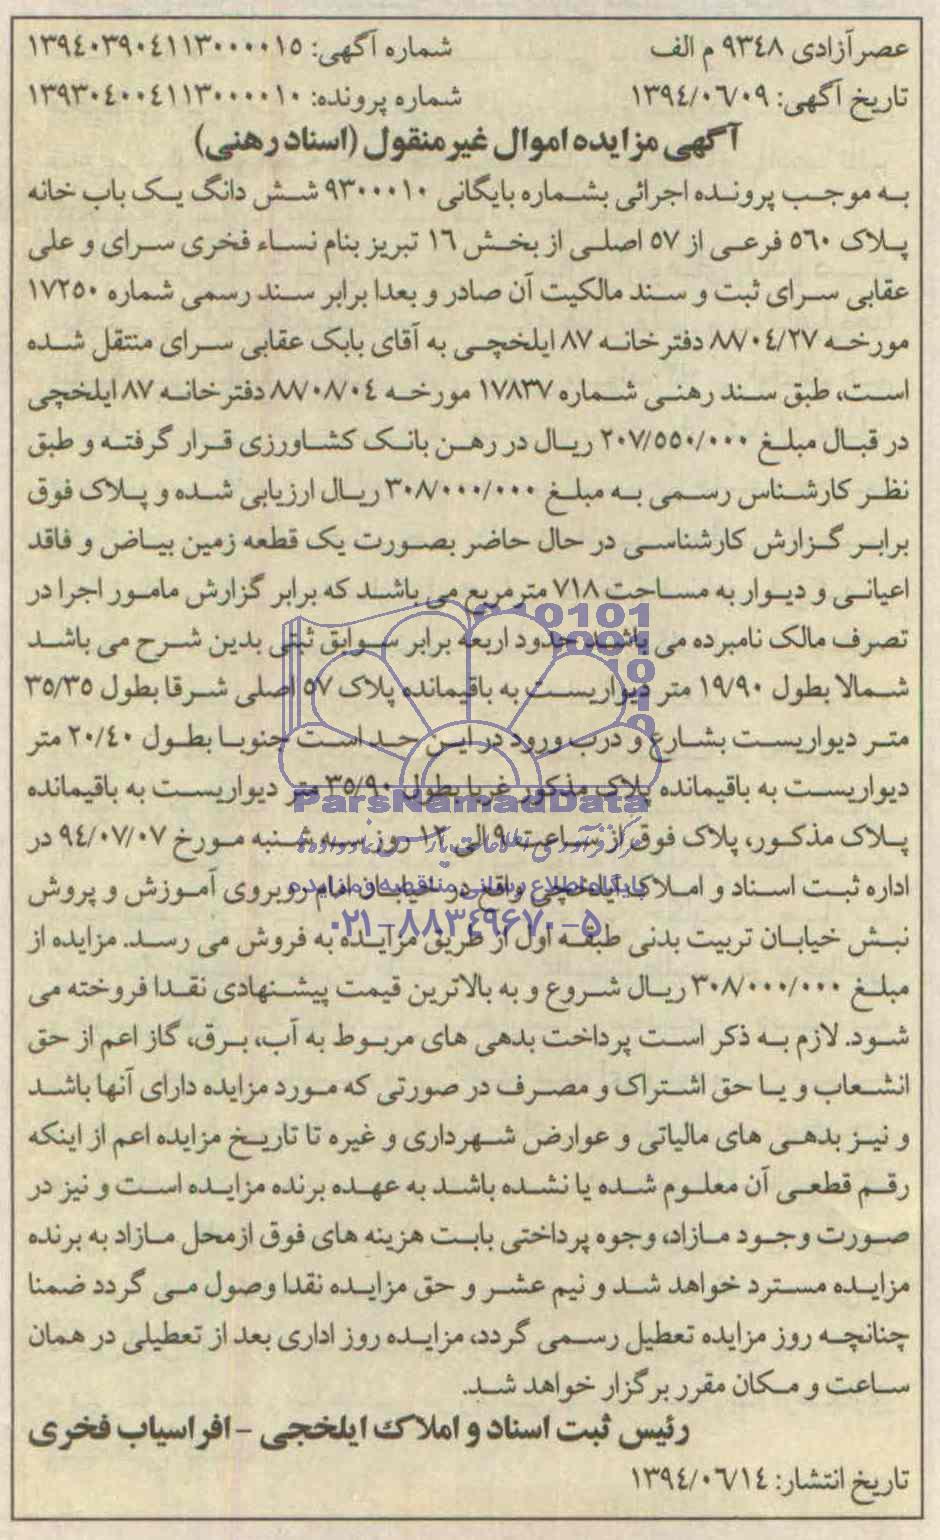 عصرآزادی ۹۳۴۸ م الف
شماره آگهی: ۱۳۹۴۰۳۹۰۴۱۱۳۰۰۰۰۱۵
تاریخ آگهی: ۱۳۹۴/۰۶/۰۹
شماره پرونده: ۱۳۹۳۰۴۰۰۴۱۱۳۰۰۰۰۱۰
آگهی مزایده اموال غیرمنقول (اسناد رهنی)
به موجب پرونده اجرائی بشماره بایگانی ۹۳۰۰۰۱۰ شش دانگ یک باب خانه
پلاک ۵۶۰ فرعی از ۵۷ اصلی از بخش ۱۶ تبریز بنام نساء فخری سرای و علی
عقابی سرای ثبت و سند مالکیت آن صادر و بعدا برابر سند رسمی شماره ۱۷۲۵۰
مورخه ۸۸/۰۴/۲۷ دفترخانه ۸۷ ایلخچی به آقای بابک عقابی سرای منتقل شده
است، طبق سند رهنی شماره ۱۷۸۳۷ مورخه ۸۸/۰۸/۰۴ دفترخانه ۸۷ ایلخچی
در قبال مبلغ ۲۰۷/۵۵۰/۰۰۰ ریال در رهن بانک کشاورزی قرار گرفته و طبق
نظر کارشناس رسمی به مبلغ ۳۰۸/۰۰۰/۰۰۰ ریال ارزیابی شده و پلاک فوق
برابر گزارش کارشناسی در حال حاضر بصورت یک قطعه زمین بیاض و فاقد
اعیانی و دیوار به مساحت ۷۱۸ مترمربع می باشد که برابر گزارش مامور اجرا در
تصرف مالک نامبرده می باشد حدود اربعه برابر سوابق ثبتی بدین شرح می باشد
شمالا بطول ۱۹/۹۰ متر دیواریست به باقیمانده پلاک ۵۷ اصلی شرقا بطول ۳۵/۳۵
متر دیواریست بشارع و درب ورود در این حد است جنوبا بطول ۲۰/۴۰ متر
دیواریست به باقیمانده پلاک مذکور غربا بطول ۳۵/۹۰ متر دیواریست به باقیمانده
پلاک مذکور، پلاک فوق از ساعت ۹ الی ۱۲ روز سه شنبه مورخ ۹۴/۰۷/۰۷ در
اداره ثبت اسناد و املاک ایلخچی واقع در خیابان امام روبروی آموزش و پروش
نبش خیابان تربیت بدنی طبقه اول از طریق مزایده به فروش می رسد. مزایده از
مبلغ ۳۰۸/۰۰۰/۰۰۰ ریال شروع و به بالاترین قیمت پیشنهادی نقدا فروخته می
شود. لازم به ذکر است پرداخت بدهی های مربوط به آب، برق، گاز اعم از حق
انشعاب و یا حق اشتراک و مصرف در صورتی که مورد مزایده دارای آنها باشد
و نیز بدهی های مالیاتی و عوارض شهرداری و غیره تا تاریخ مزایده اعم از اینکه
رقم قطعی آن معلوم شده یا نشده باشد به عهده برنده مزایده است و نیز در
صورت وجود مازاد، وجوه پرداختی بابت هزینه های فوق ازمحل مازاد به برنده
مزایده مسترد خواهد شد و نیم عشر و حق مزایده نقدا وصول می گردد ضمنا
چنانچه روز مزایده تعطیل رسمی گردد، مزایده روز اداری بعد از تعطیلی در همان
ساعت و مکان مقرر برگزار خواهد شد.
رئیس ثبت اسناد و املاک ایلخجی - افراسیاب فخری
تاریخ انتشار: ۱۳۹۴/۰۶/۱۴
ParsNamadData
پایگاه اطلاع رسانی مناقصه و مزایده
۰۲۱-۸۸۳۴۹۶۷۰-۵